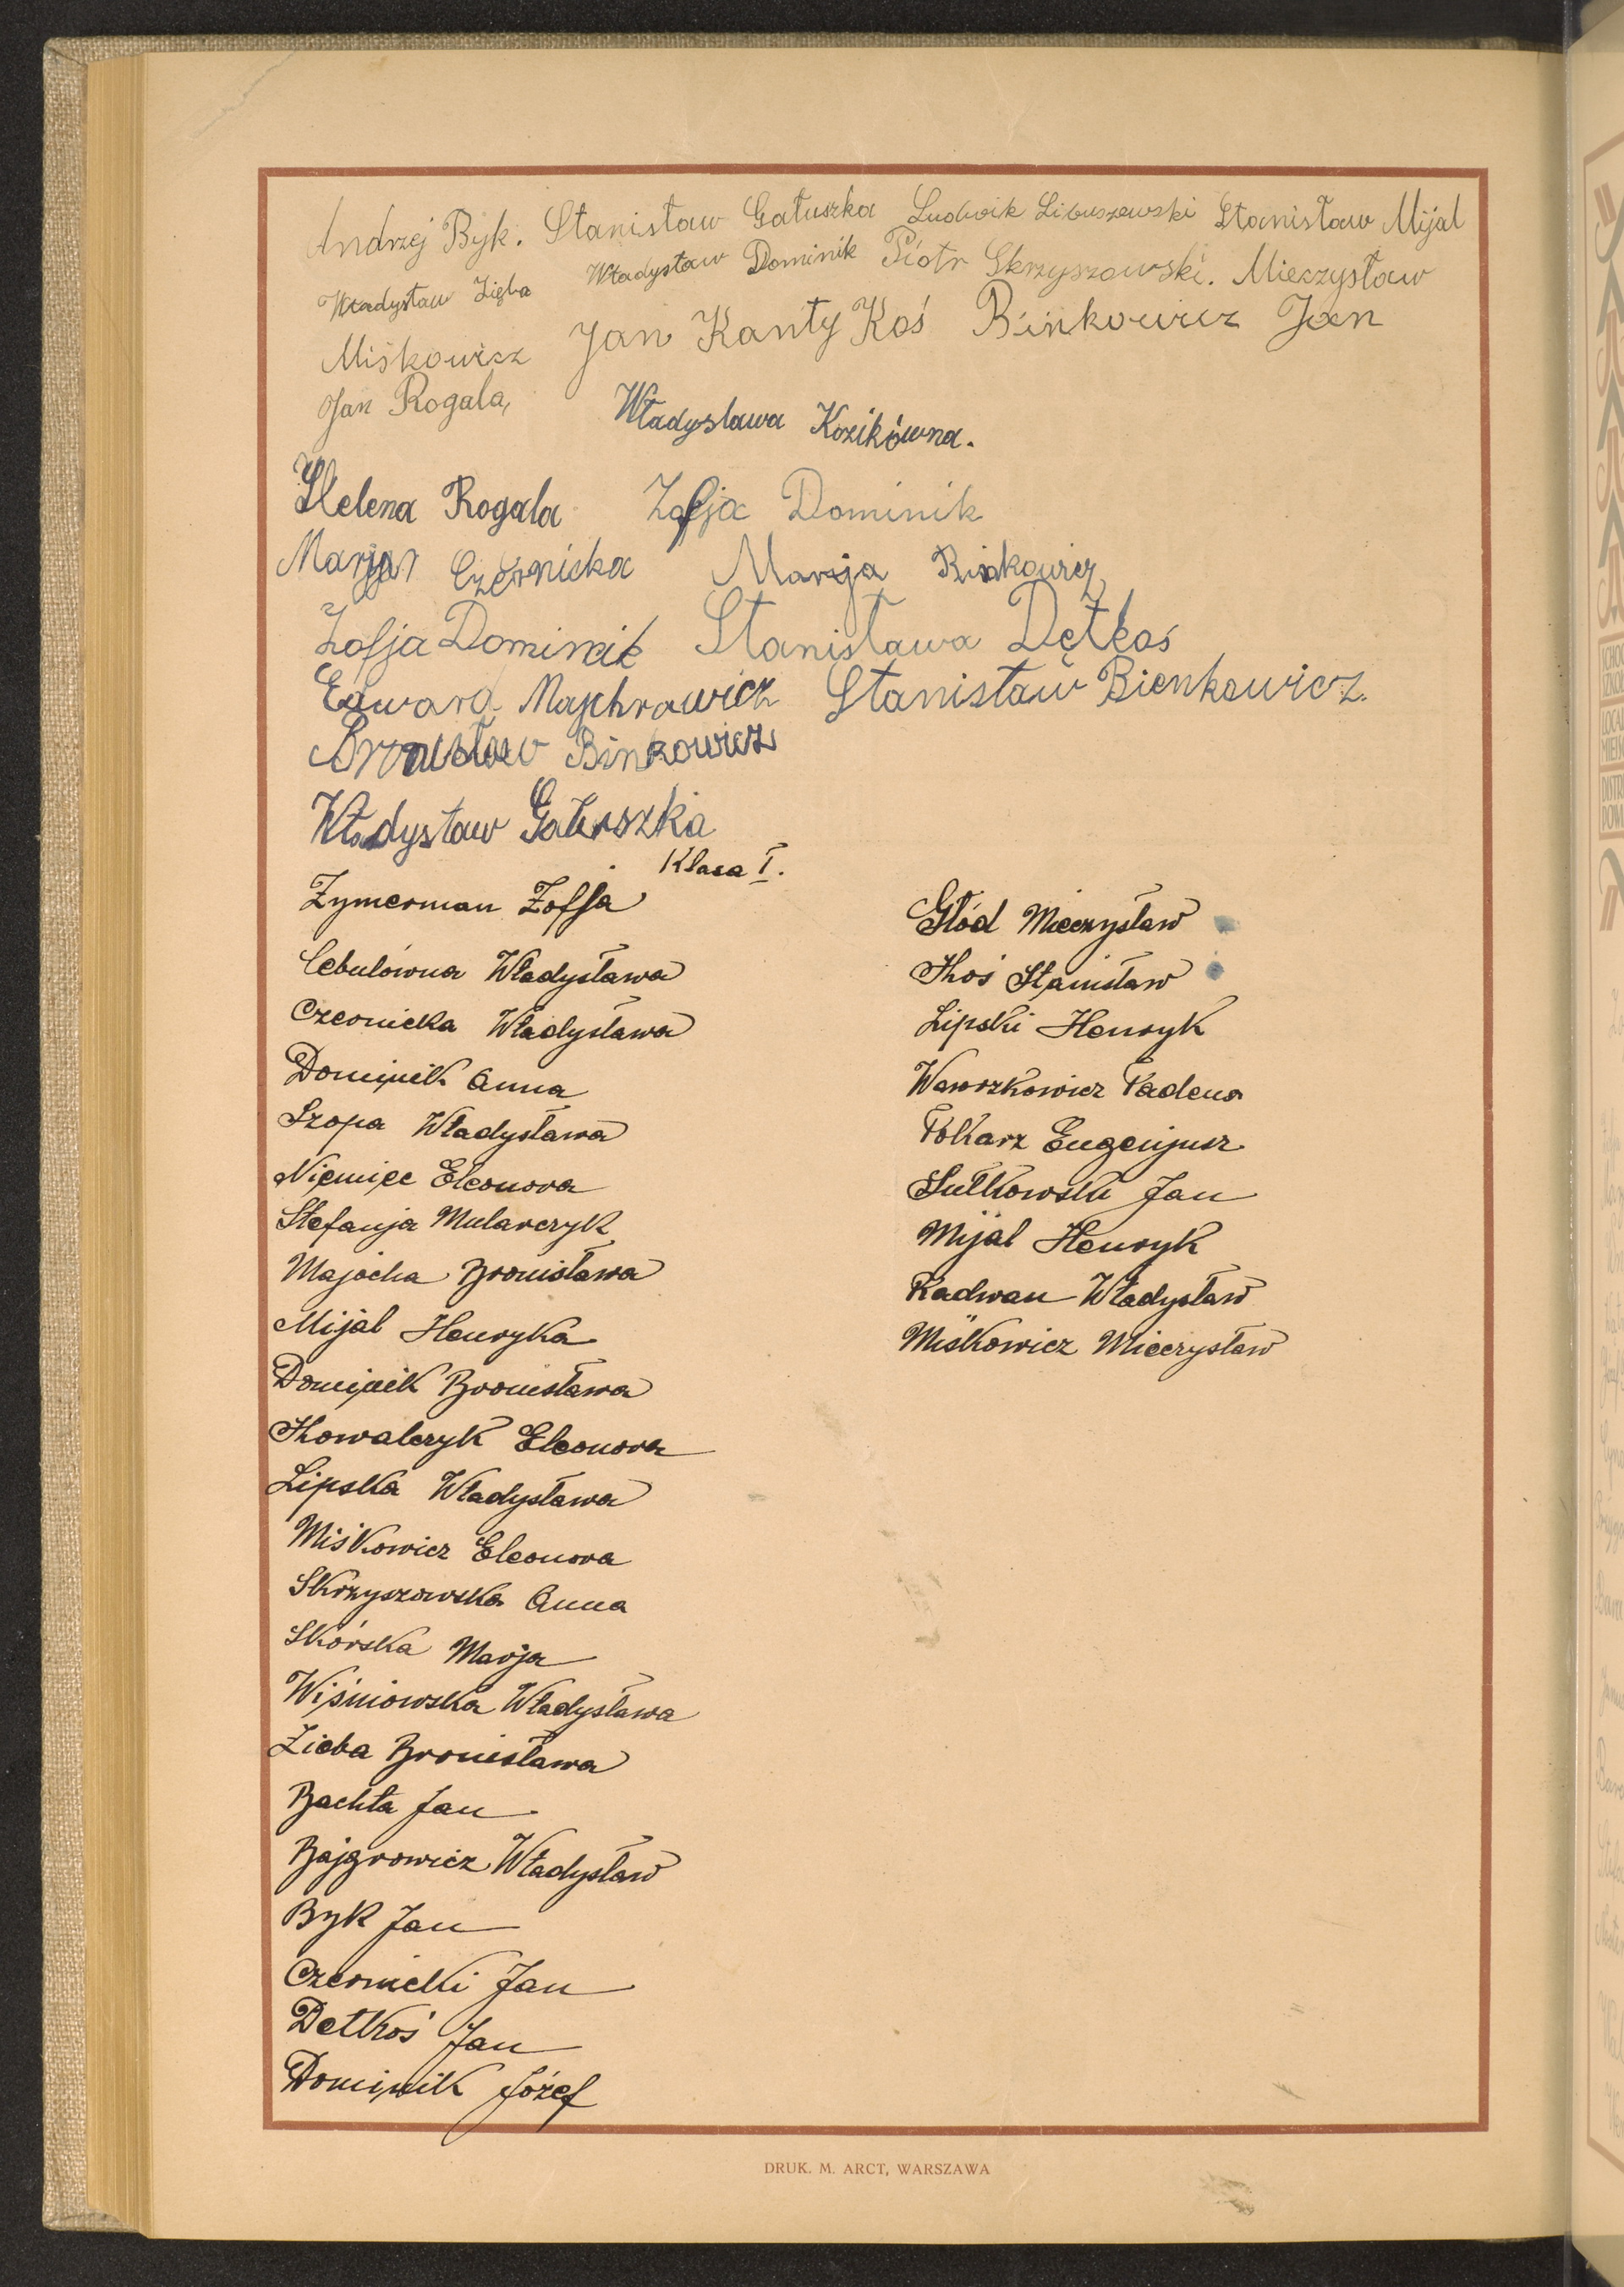 Andrzej Byk. Stanisław Gałuszka Ludwik Libuszowski Stanisław Mijal
Władysław Zięba Władysław Dominik Piotr Skrzyszowski. Mieczysław
Miśkowicz Jan Kanty Koś Binkowicz Jan
Jan Rogala, Władysława Kozikówna.
Helena Rogala Zofja Dominik
Marja Czernicka Marija Binkowicz
Zofja Dominik Stanisława Dętkoś
Edward Majchrowicz Stanisław Bienkowicz.
Bronisław Binkowicz
Władysław Gałuszka
Klasa I.
Zymerman Zofja
Cebulówna Władysława
Czernicka Władysława
Dominik Anna
Szopa Władysława
Niemiec Eleonora
Stefanja Mularczyk
Majocha Bronisława
Mijal Henryka
Dominik Bronisława
Kowalczyk Eleonora
Lipska Władysława
Miśkowicz Eleonora
Skrzyszowska Anna
Skórska Marja
Wiśniowska Władysława
Zięba Bronisława
Bachta Jan
Bajgrowicz Władysław
Byk Jan
Czernicki Jan
Detkoś Jan
Dominik Józef
Głód Mieczysław
Koś Stanisław
Lipski Henryk
Wawszkowicz Tadeusz
Tokarz Eugenjusz
Sułkowski Jan
Mijal Henryk
Radwan Władysław
Miśkowicz Mieczysław
DRUK. M. ARCT, WARSZAWA